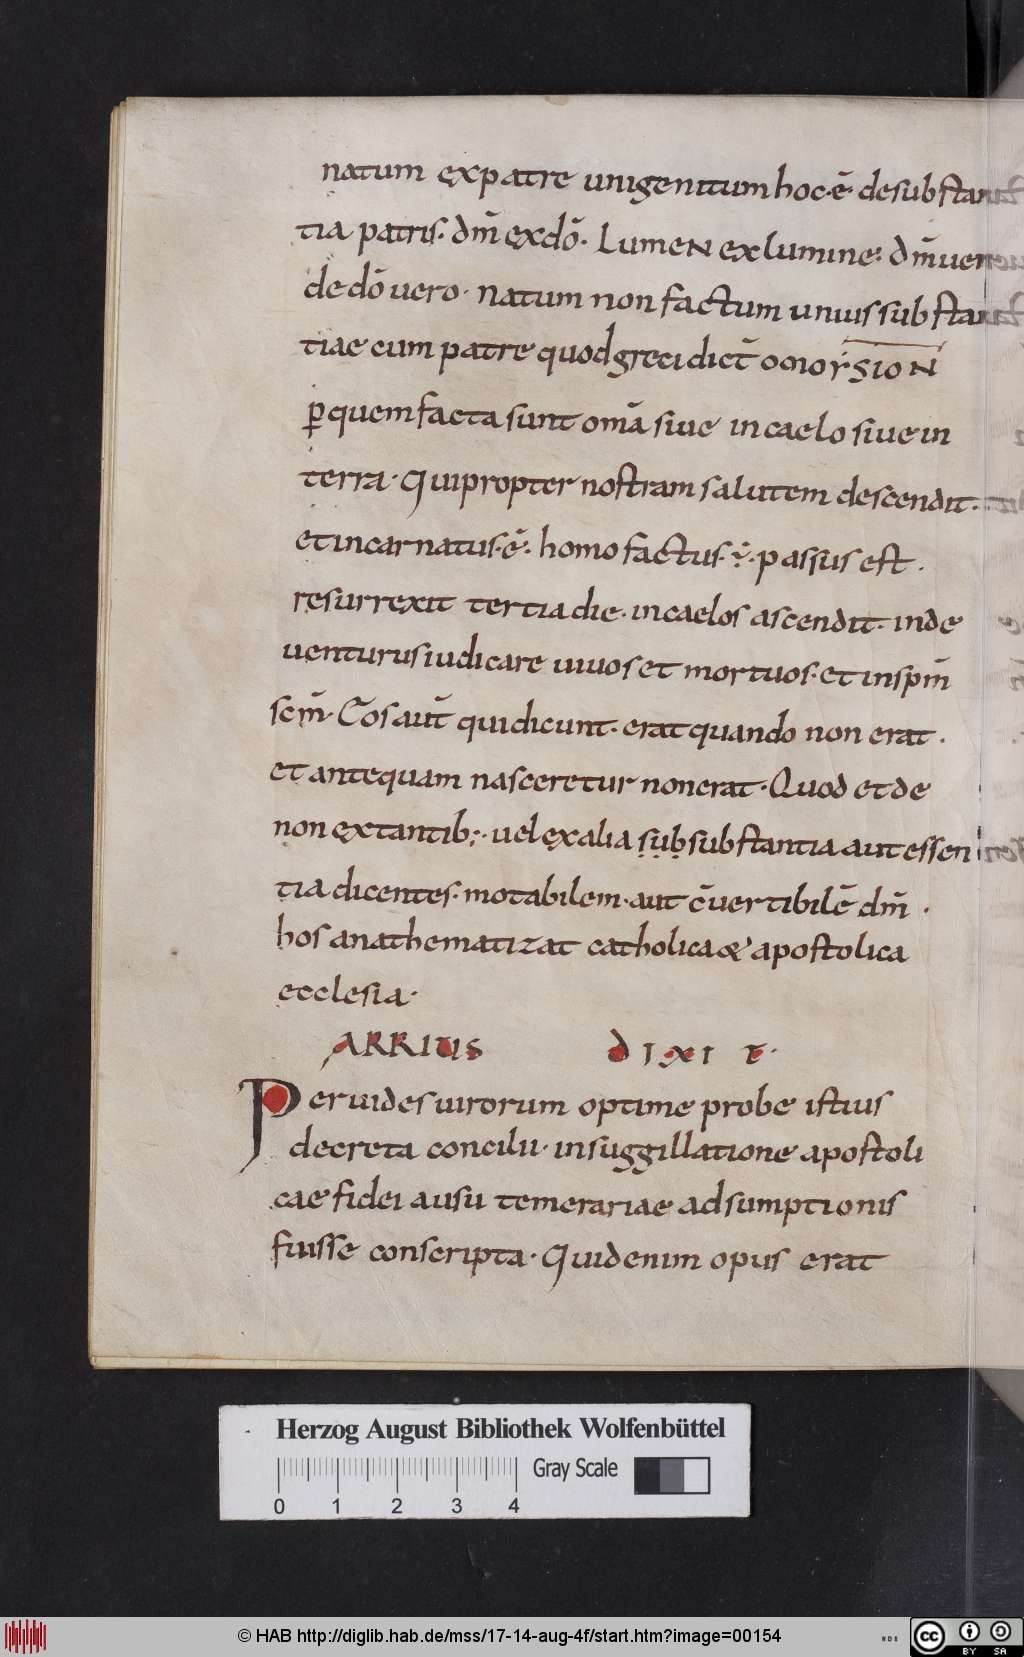 natum ex patre unigenitum hoc·ē· de substan
tia patris· dm̄ ex dō· Lumen ex lumine· dm̄ uerū
de dō uero· natum non factum unius substan
tiae cum patre quod greci dict̄ omoysion
ꝑ quem facta sunt omā siue in caelo siue in
terra· Qui propter nostram salutem descendit·
et incarnatus·ē· homo factus· passus est·
resurrexit tertia die· in caelos ascendit· inde
uenturus iudicare uiuos et mortuos· et in spm̄
scm̄· Eos aut̄ qui dicunt· erat quando non erat·
et antequam nasceretur non erat· Quod et de
non extantib;· uel ex alia sub substantia aut essen
tia dicentes· motabilem· aut c̄uertibilē dm̄·
hos anathematizat catholica & apostolica
ecclesia·
ARRIUS dIXIT·
Peruides uirorum optime probe istius
decreta concilii· in suggillatione apostoli
cae fidei ausu temerariae adsumptionis
fuisse conscripta· Quid enim opus erat
Herzog August Bibliothek Wolfenbüttel
Gray Scale
0 1 2 3 4
© HAB http://diglib.hab.de/mss/17-14-aug-4f/start.htm?image=00154
cc BY SA